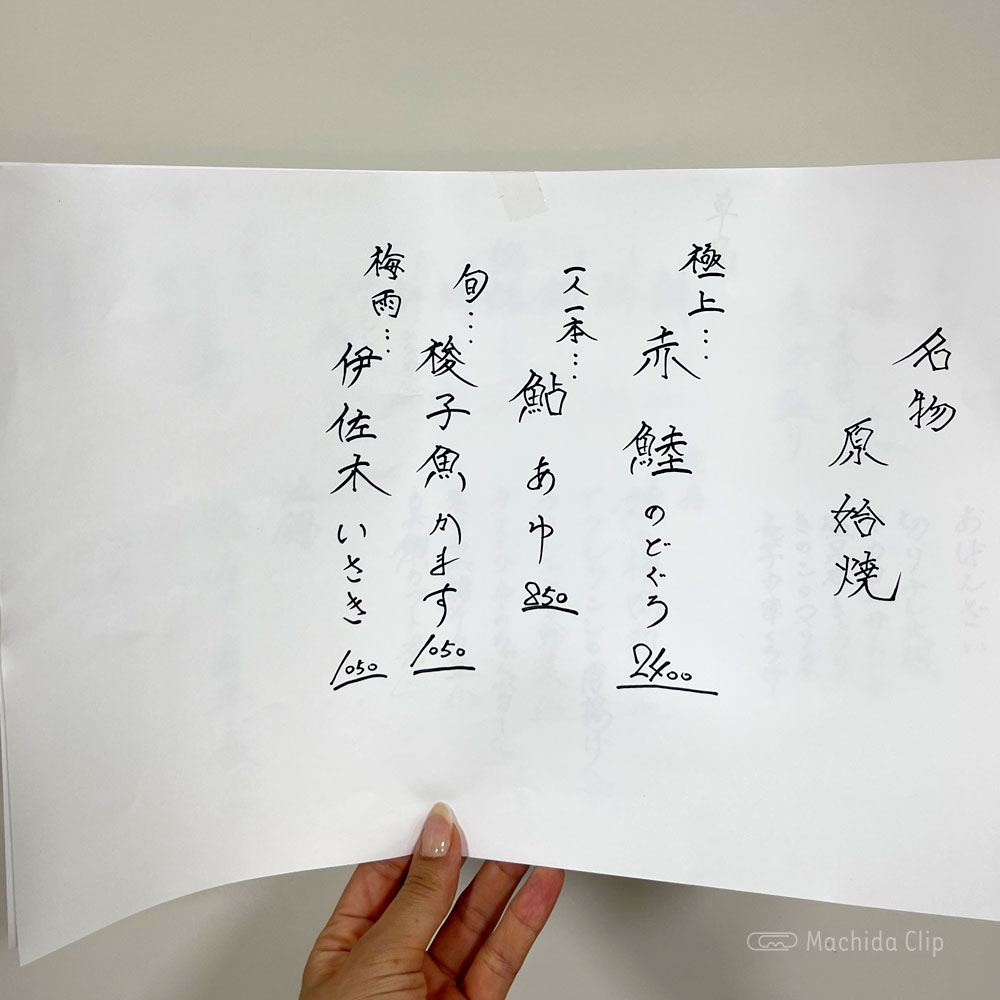 名物
原始焼
極上…
赤鯥のどぐろ 2400
一人一本…
鮎 あゆ 850
旬…
梭子魚かます 1050
梅雨…
伊佐木いさき 1050
Machida Clip